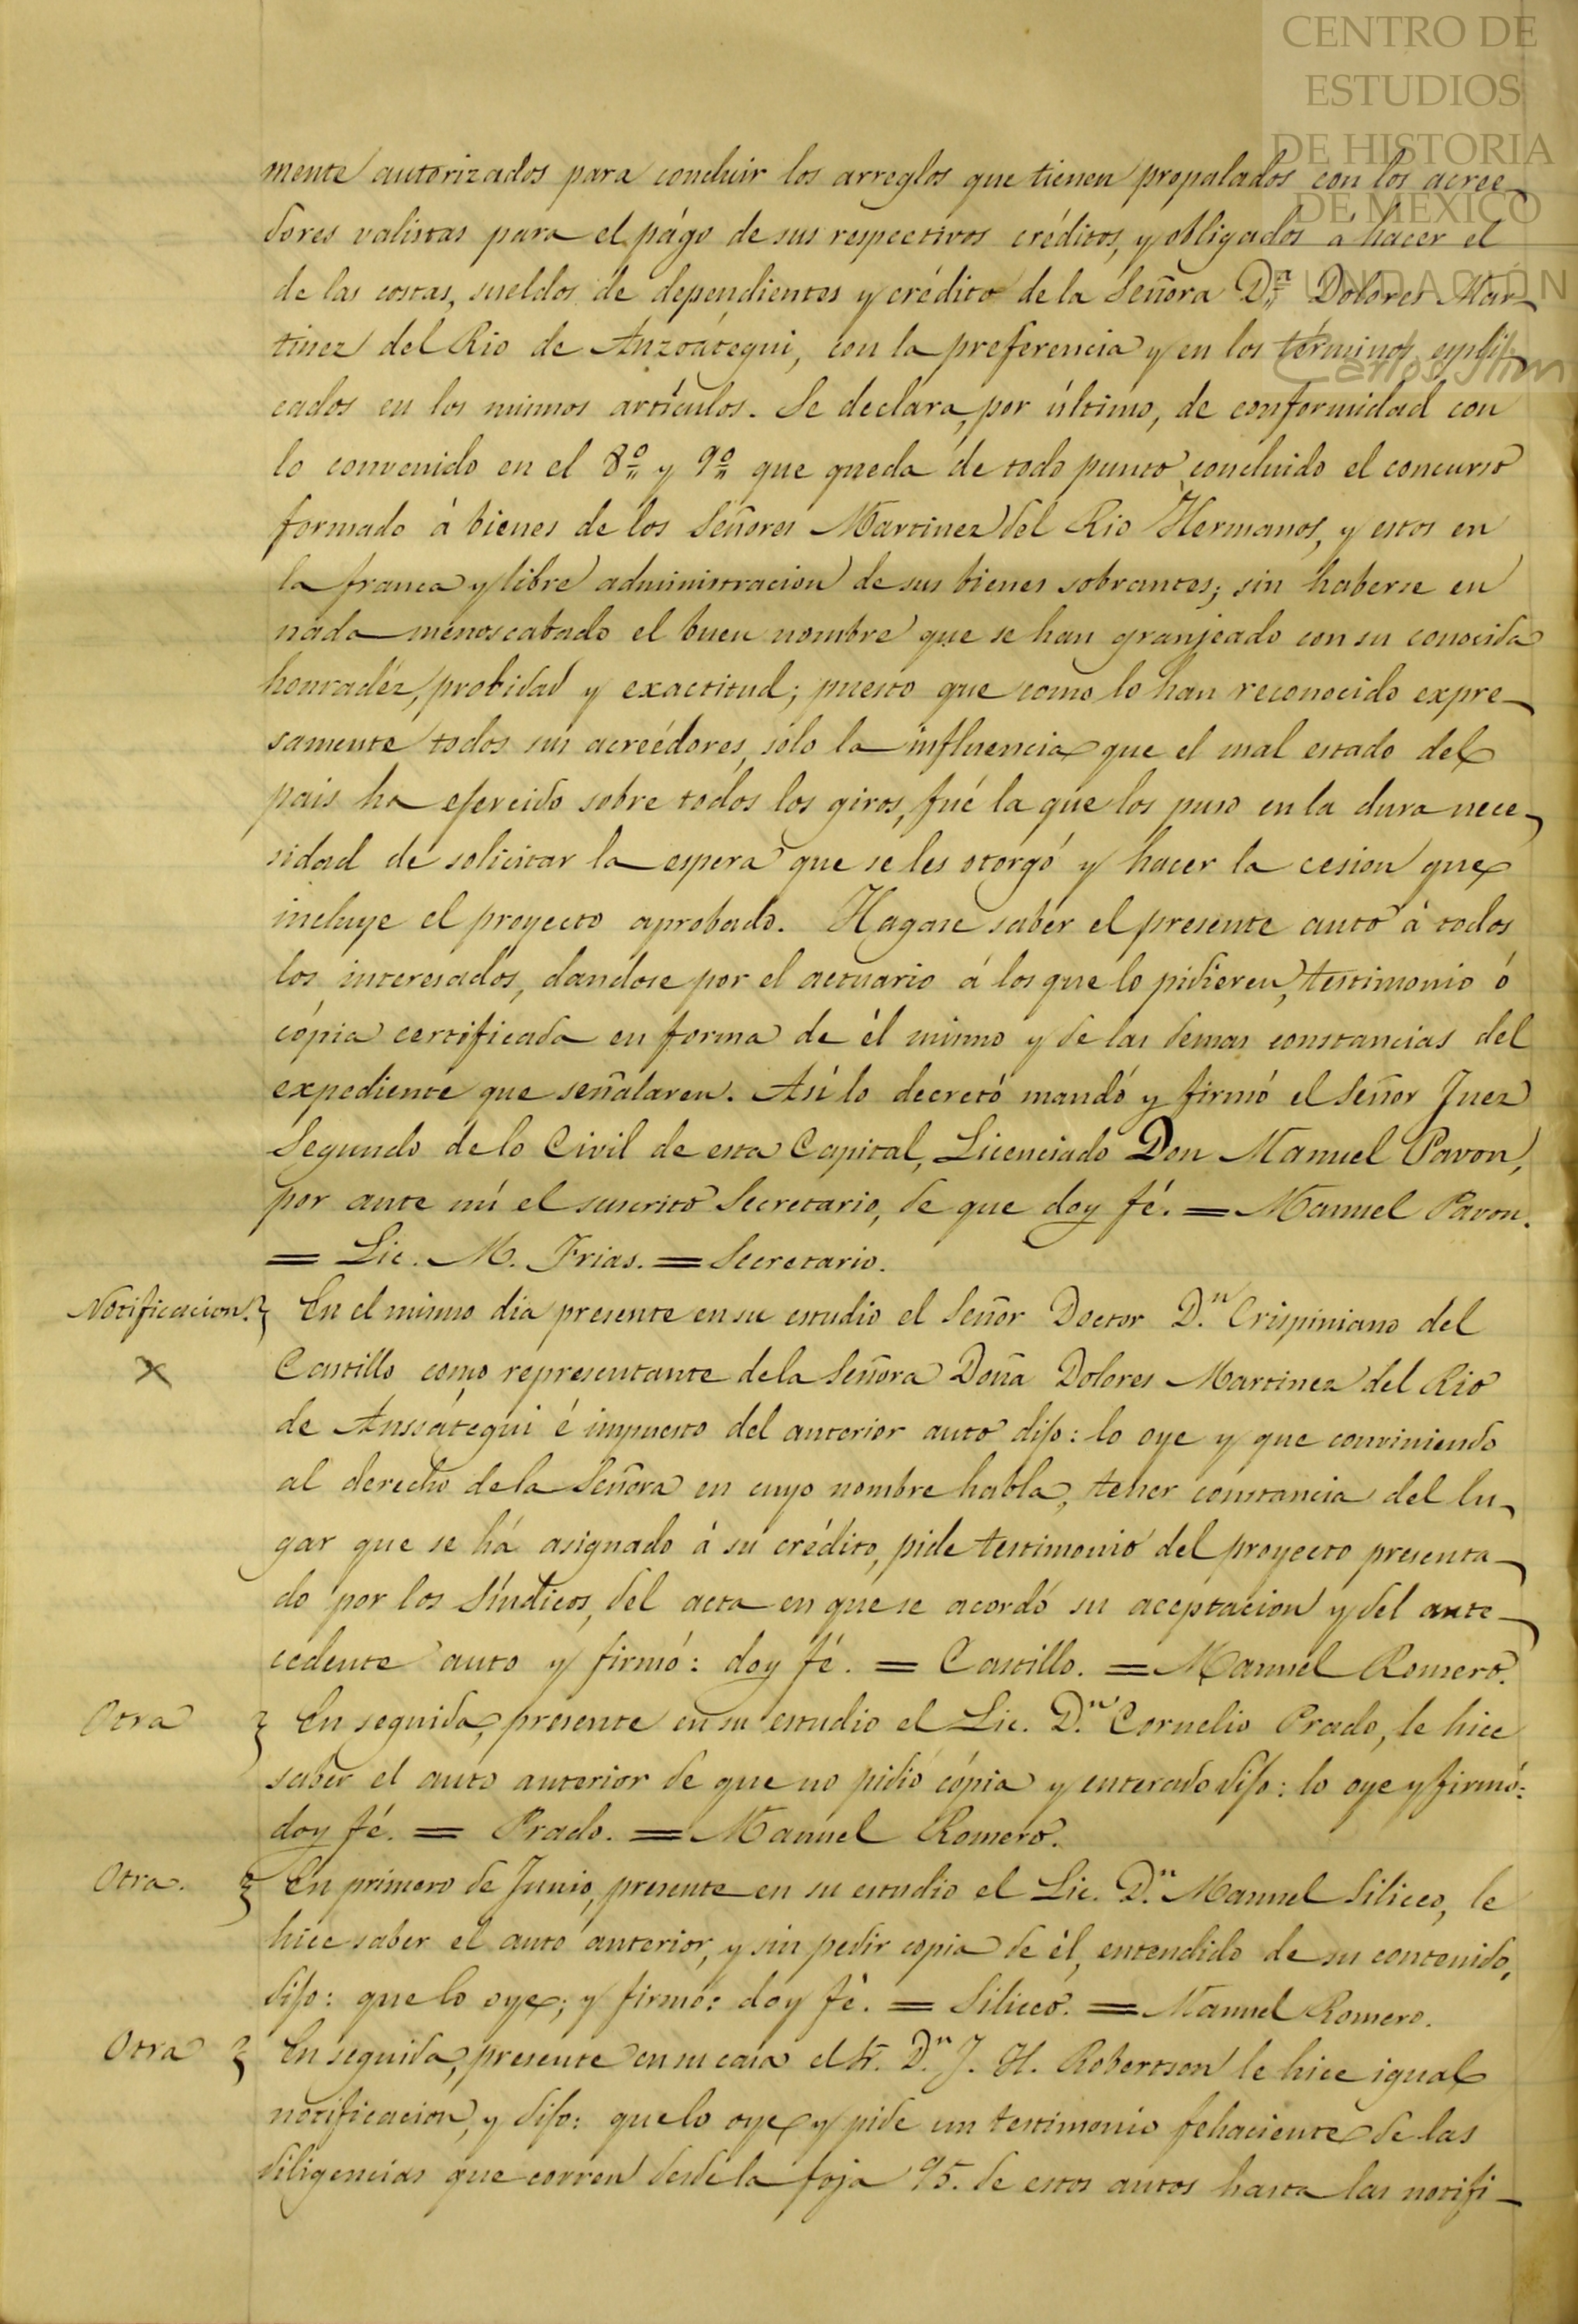 CENTRO DE
ESTUDIOS
DE HISTORIA
DE MÉXICO
FUNDACIÓN
Carlos Slim
mente autorizados para concluir los arreglos que tienen propalados con los acree-
dores valistas para el págo de sus respectivos créditos, y obligados a hacer el
de las costas, sueldos de dependientes y crédito de la Señora Dª Dolores Mar-
tinez del Rio de Anzoátegui, con la preferencia y en los términos espli-
cados en los mismos artículos. Se declara, por último, de conformidad con
lo convenido en el 8º y 9º que queda de todo punto concluido el concurso
formado á bienes de los Señores Martinez del Rio Hermanos, y estos en
la franca y libre administracion de sus bienes sobrantes; sin haberse en
nada menoscabado el buen nombre que se han granjeado con su conocida
honradéz, probidad y exactitud; puesto que como lo han reconocido expre-
samente todos sus acreédores, sólo la influencia que el mal estado del
pais ha ejercido sobre todos los giros, fué la que los puso en la dura nece-
sidad de solicitar la espera que se les otorgó y hacer la cesion que
incluye el proyecto aprobado. Hagase saber el presente auto á todos
los interesados, dandose por el actuario á los que lo pidieren, testimonio ó
cópia certificada en forma de él mismo y de las demas constancias del
expediente que señalaren. Así lo decretó mandó y firmó el Señor Juez
Segundo de lo Civil de esta Capital, Licenciado Don Manuel Pavon,
por ante mí el suscrito Secretario, de que doy fé. = Manuel Pavon.
= Lic. M. Frias. = Secretario.
Notificacion. En el mismo dia presente en su estudio el Señor Doctor D.n Crispiniano del
X Castillo como representante de la Señora Doña Dolores Martinez del Rio
de Ansoátegui é impuesto del anterior auto dijo: lo oye y que conviniendo
al derecho de la Señora en cuyo nombre habla, tener constancia del lu-
gar que se há asignado á su crédito, pide testimonio del proyecto presenta-
do por los Síndicos, del acta en que se acordó su aceptacion y del ante-
cedente auto y firmó: doy fé. = Castillo. = Manuel Romero.
Otra En seguida, presente en su estudio el Lic. D.n Cornelio Prado, le hice
saber el auto anterior de que no pidió cópia y enterado dijo: lo oye y firmó:
doy fé. = Prado. = Manuel Romero.
Otra. En primero de Junio, presente en su estudio el Lic. D.n Manuel Siliceo, le
hice saber el auto anterior, y sin pedir copia de él, entendido de su contenido,
dijo: que lo oye; y firmó: doy fé. = Siliceo. = Manuel Romero.
Otra En seguida, presente en su casa el Sr. D.n J. H. Robertson le hice igual
notificacion, y dijo: que lo oye y pide un testimonio fehaciente de las
diligencias que corren desde la foja 95. de estos autos hasta las notifi-